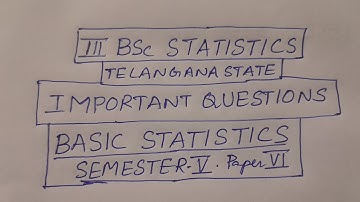 III BSc STATISTICS
TELANGANA STATE
IMPORTANT QUESTIONS
BASIC STATISTICS
SEMESTER-V. Paper VI